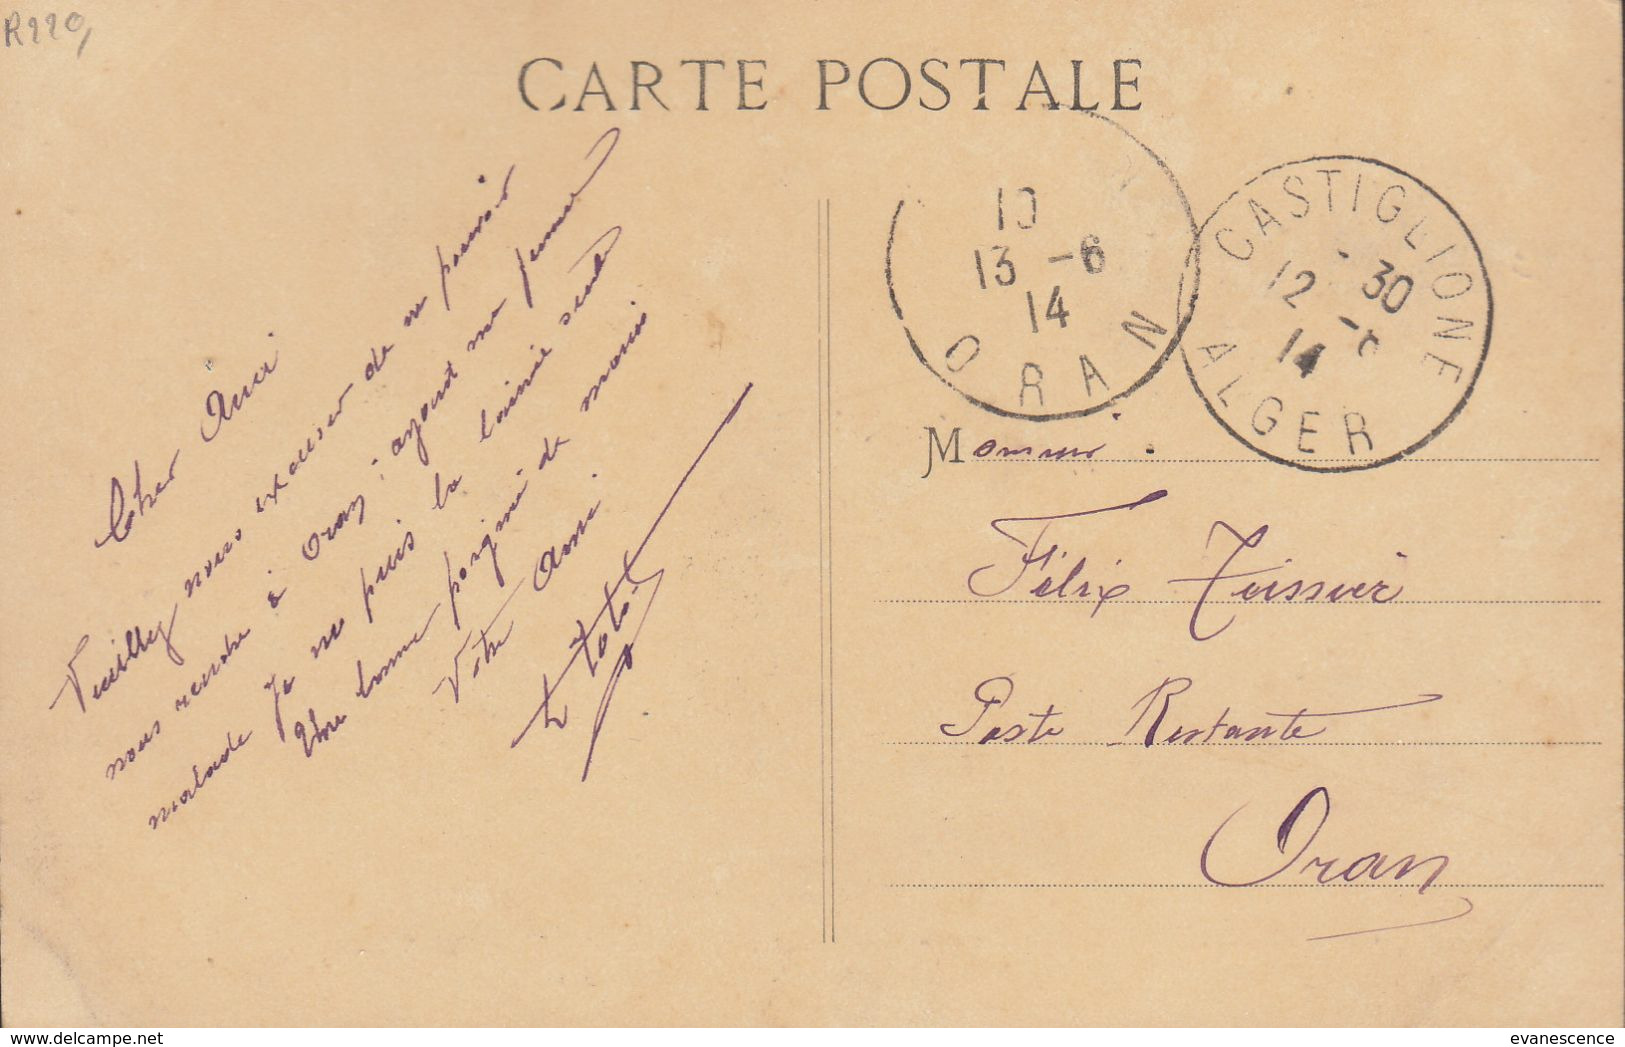 R220
CARTE POSTALE
10
13 -6
14
ORAN
CASTIGLIONE
12 - 30
14 -6
ALGER
Cher Ami
Veuillez nous excuser de ne pouvoir
nous rendre à Oran; ayant ma femme
malade je ne puis la laissé seule
Une bonne poignée de mains
Votre Ami.
Monsieur
Félix Teissier
Poste Restante
Oran
www.delcampe.net
evanescence